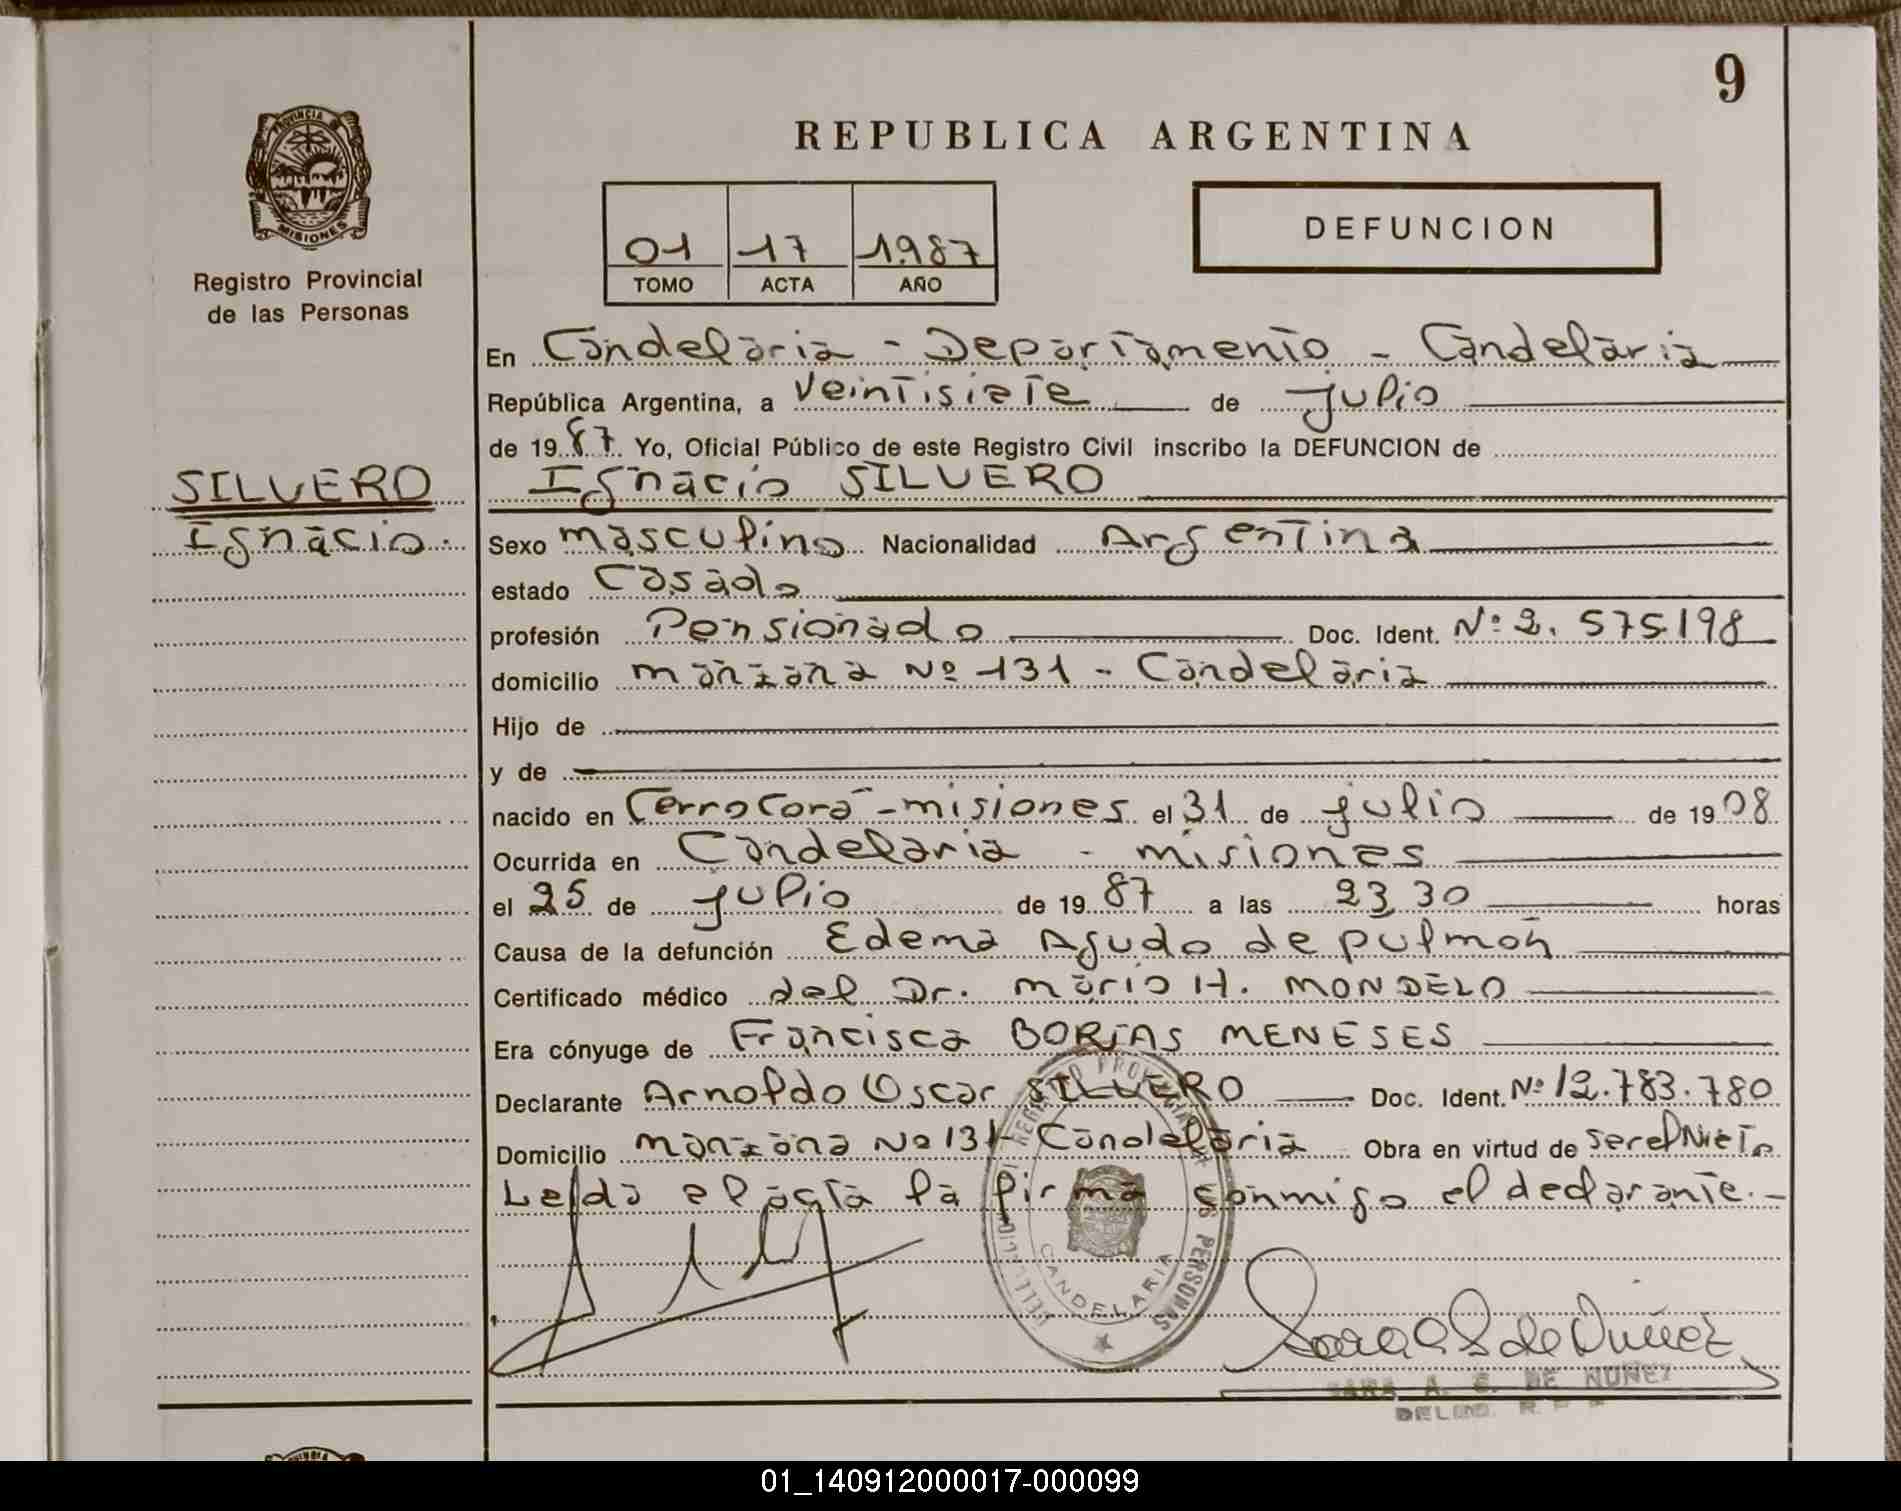 9
REPUBLICA ARGENTINA
PROVINCIA DE
MISIONES
Registro Provincial
de las Personas
01 17 1987
TOMO ACTA AÑO
DEFUNCION
En Candelaria - Departamento - Candelaria
República Argentina, a veintisiete de julio
de 1987 Yo, Oficial Público de este Registro Civil inscribo la DEFUNCION de
SILVERO
Ignacio SILVERO
Ignacio.
Sexo masculino Nacionalidad Argentina
estado Casado
profesión Pensionado Doc. Ident. Nº 2.575198
domicilio manzana Nº 131 - Candelaria
Hijo de
y de
nacido en Cerro Corá - misiones el 31 de julio de 1908
Ocurrida en Candelaria - misiones
el 25 de julio de 1987 a las 23,30 horas
Causa de la defunción Edema Agudo de pulmón
Certificado médico del Dr. Mario H. MONDELO
Era cónyuge de Francisca BORJAS MENESES
Declarante Arnoldo Oscar SILVERO Doc. Ident. Nº 12.783.780
Domicilio manzana Nº 131 Candelaria Obra en virtud de ser el Nieto
Leida el acta la firma conmigo el declarante.-
CANDELARIA
SARA A. S. DE NUÑEZ
01_140912000017-000099